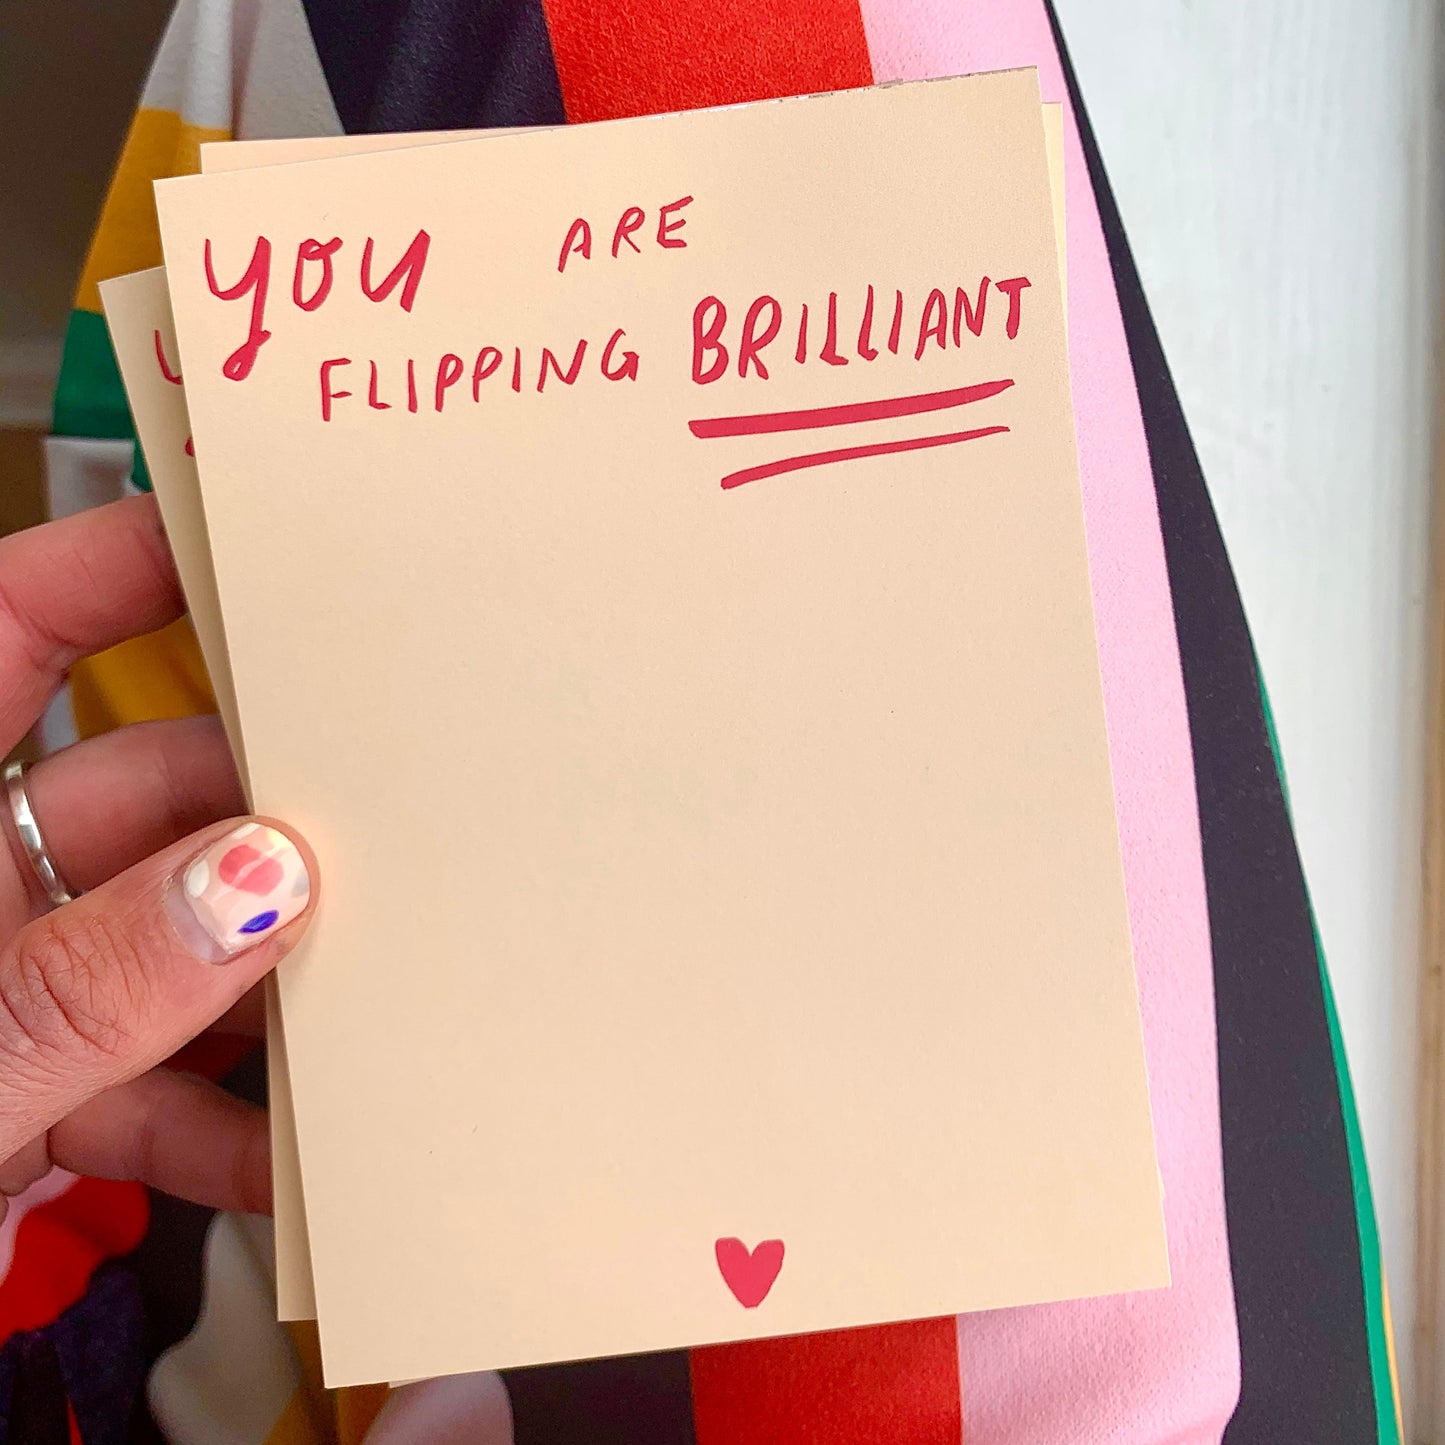 YOU ARE
FLIPPING BRILLIANT